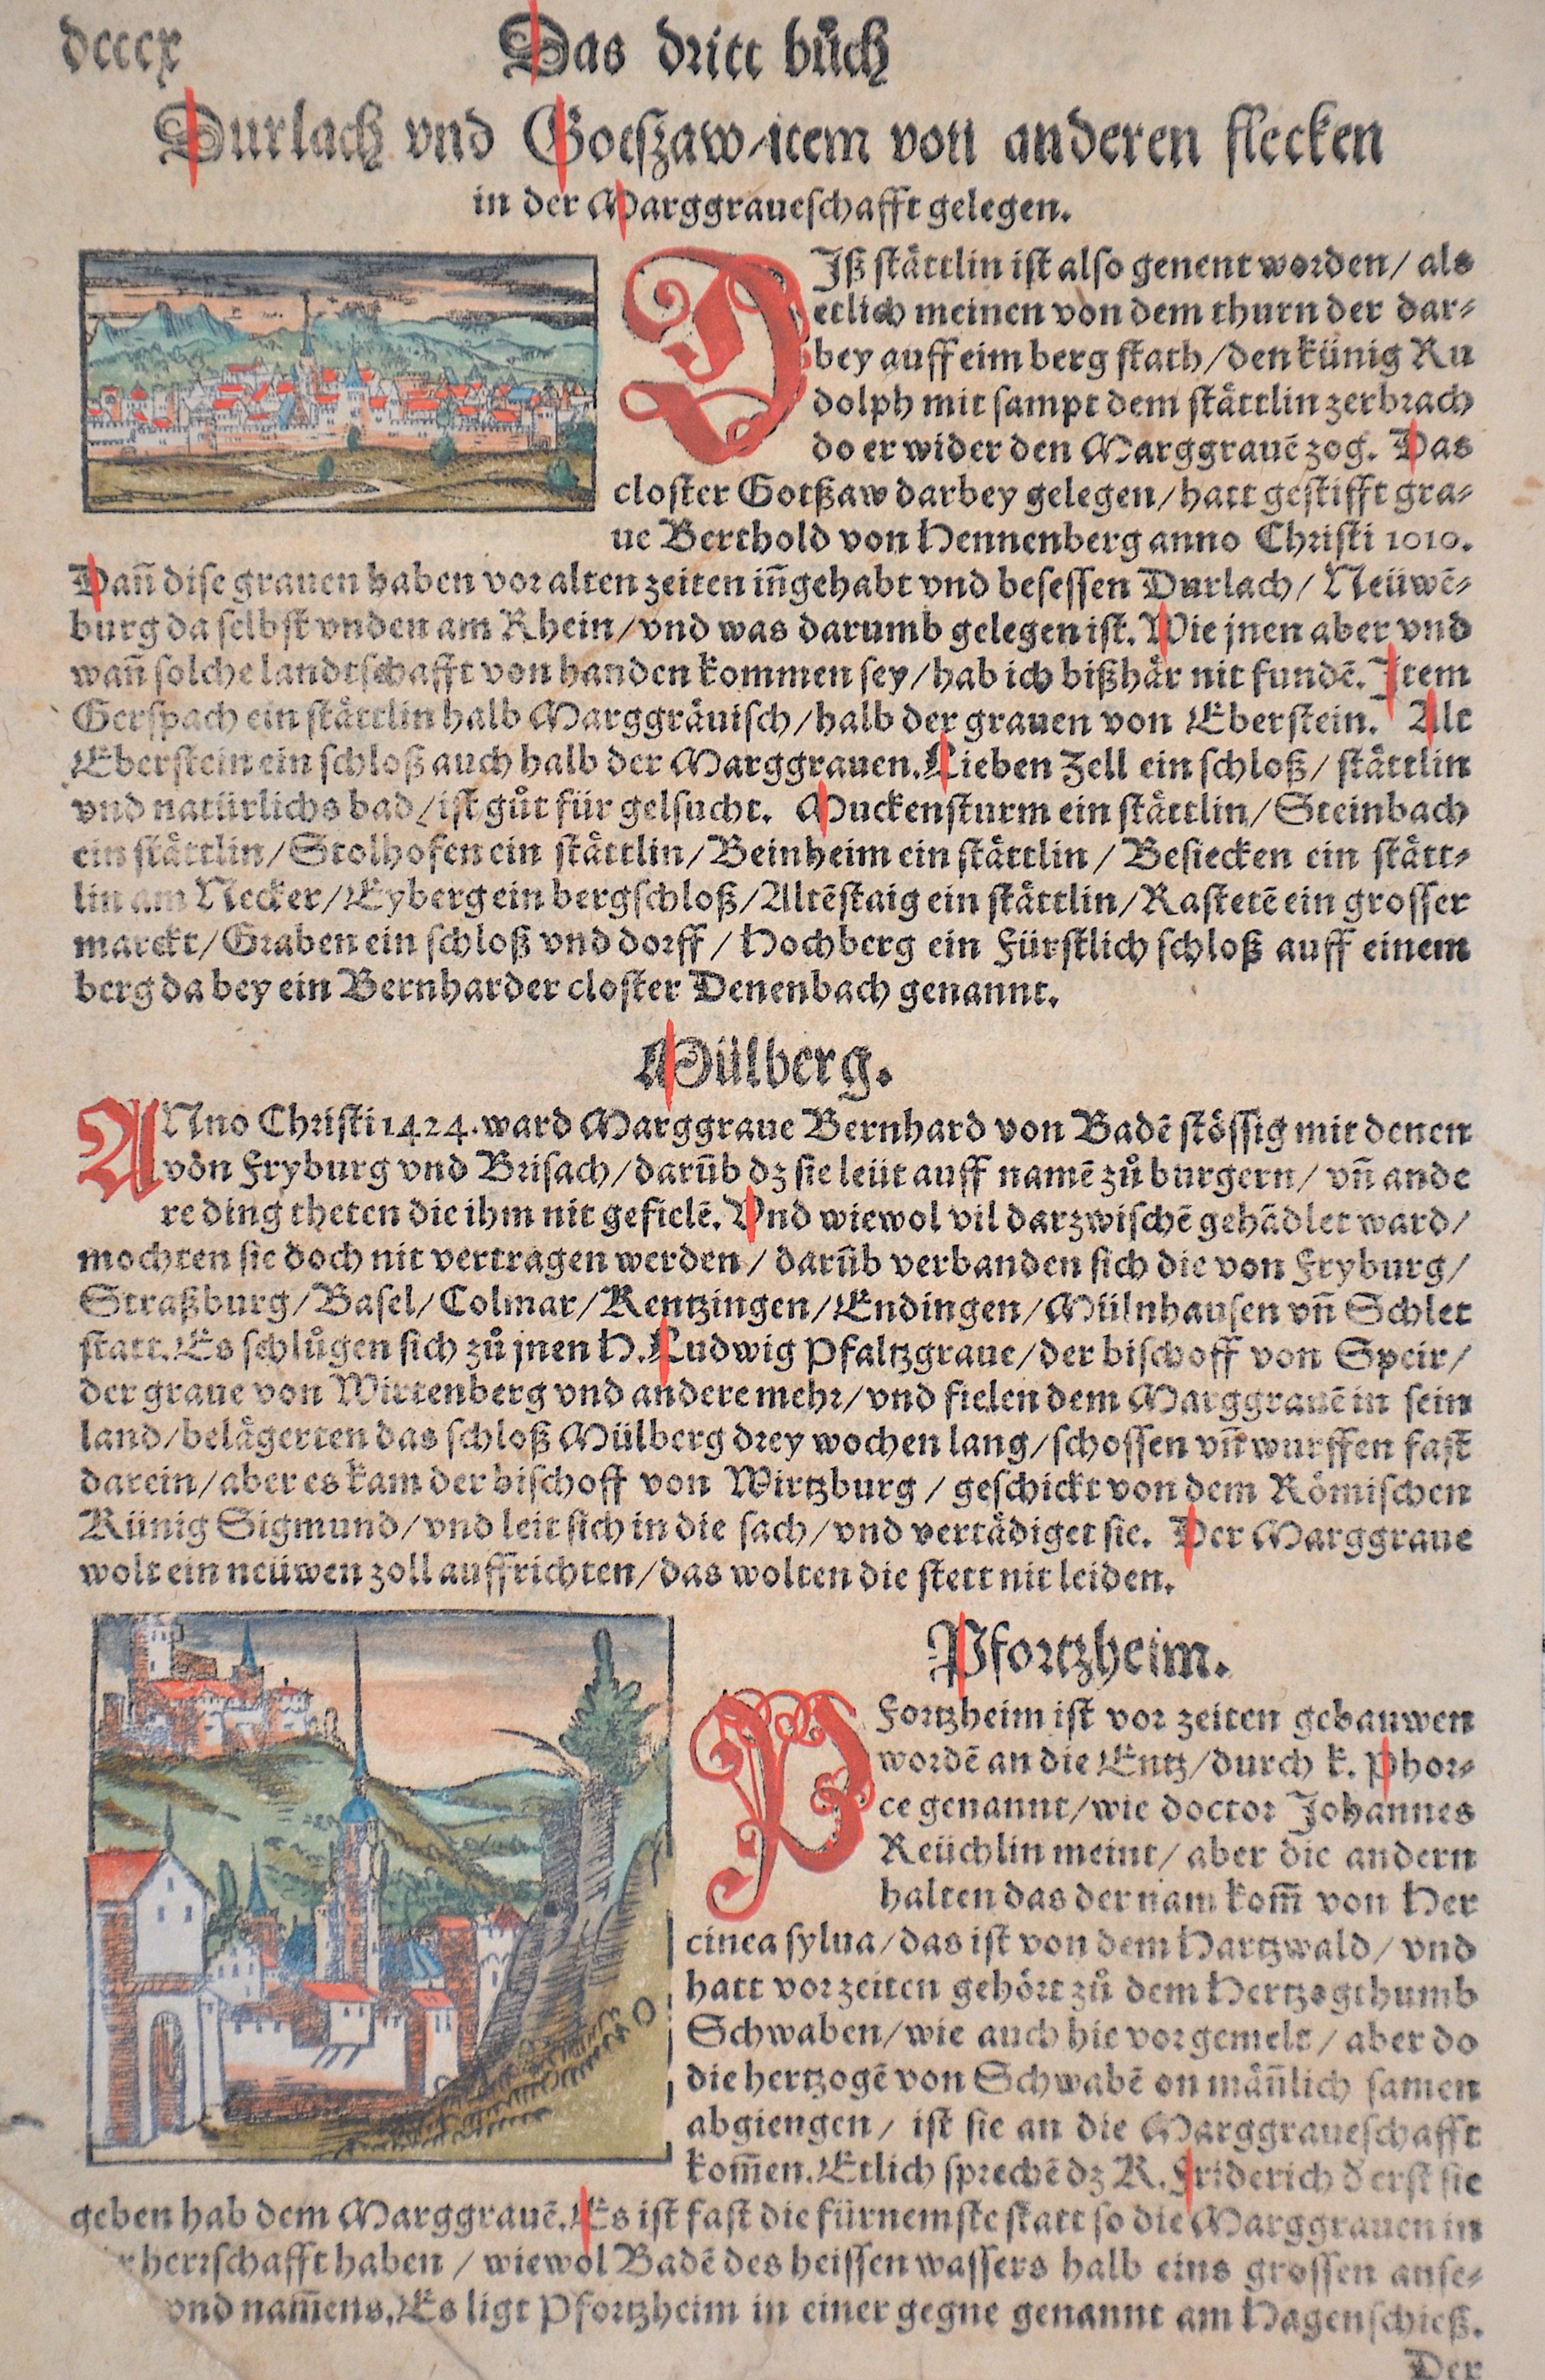 dcccx
Das dritt bůch
Durlach vnd Gotſzaw/item von anderen flecken
in der Marggraueſchafft gelegen.
DIß ſtåttlin iſt alſo genent worden/ als
etlich meinen von dem thurn der dar⸗
bey auff eim berg ſtath/den künig Ru
dolph mit ſampt dem ſtåttlin zerbrach
do er wider den Marggrauẽ zog. Das
cloſter Gotßaw darbey gelegen/hatt geſtifft gra⸗
ue Berthold von Hennenberg anno Chriſti 1010.
Dañ diſe grauen haben vor alten zeiten iñgehabt vnd beſeſſen Durlach/ Neüwẽ⸗
burg da ſelbſt vnden am Rhein/vnd was darumb gelegen iſt. Wie jnen aber vnd
wañ ſolche landtſchafft von handen kommen ſey/hab ich bißhår nit fundẽ. Item
Gerſpach ein ſtåttlin halb Marggråuiſch/halb der grauen von Eberſtein. Alt
Eberſtein ein ſchloß auch halb der Marggrauen. Lieben Zell ein ſchloß/ ſtåttlin
vnd natürlichs bad/iſt gůt für gelſucht. Muckenſturm ein ſtåttlin/Steinbach
ein ſtåttlin/Stolhofen ein ſtåttlin/Beinheim ein ſtåttlin/ Beſiecken ein ſtått⸗
lin am Necker/Eyberg ein bergſchloß/Altẽſtaig ein ſtåttlin/Raſtetẽ ein groſſer
marckt/Graben ein ſchloß vnd dorff/ Hochberg ein Fürſtlich ſchloß auff einem
berg da bey ein Bernharder cloſter Denenbach genannt.
Mülberg.
ANno Chriſti 1424. ward Marggraue Bernhard von Badẽ ſtöſſig mit denen
von Fryburg vnd Briſach/darũb dz ſie leüt auff namẽ zů burgern/ vñ ande
re ding theten die ihm nit gefielẽ. Vnd wiewol vil darzwiſchẽ gehãdlet ward/
mochten ſie doch nit vertragen werden/ darũb verbanden ſich die von Fryburg/
Straßburg/Baſel/Colmar/Kentzingen/Endingen/Mülnhauſen vñ Schlet
ſtatt. Es ſchlůgen ſich zů jnen H. Ludwig Pfaltzgraue/der biſchoff von Speir/
der graue von Wirtenberg vnd andere mehr/vnd fielen dem Marggrauẽ in ſein
land/belågerten das ſchloß Mülberg drey wochen lang/ſchoſſen vñ wurffen faſt
darein/aber es kam der biſchoff von Wirtzburg/ geſchickt von dem Römiſchen
Künig Sigmund/vnd leit ſich in die ſach/vnd vertådiget ſie. Der Marggraue
wolt ein neüwen zoll auffrichten/das wolten die ſtett nit leiden.
Pfortzheim.
PFortzheim iſt vor zeiten gebauwen
wordẽ an die Entz/durch k. Phor⸗
ce genannt/wie doctor Johannes
Reüchlin meint/ aber die andern
halten das der nam kom̃ von Her
cinea ſylua/das iſt von dem Hartzwald/ vnd
hatt vor zeiten gehört zů dem Hertzogthumb
Schwaben/wie auch hie vor gemelt/ aber do
die hertzogẽ von Schwabẽ on måñlich ſamen
abgiengen/ iſt ſie an die Marggraueſchafft
kom̃en. Etlich ſprechẽ dz K. Friderich d erſt ſie
geben hab dem Marggrauẽ. Es iſt faſt die fürnemſte ſtatt ſo die Marggrauen in
herrſchafft haben/ wiewol Badẽ des heiſſen waſſers halb eins groſſen anſe⸗
vnd nam̃ens. Es ligt Pfortzheim in einer gegne genannt am Hagenſchieß.
Der